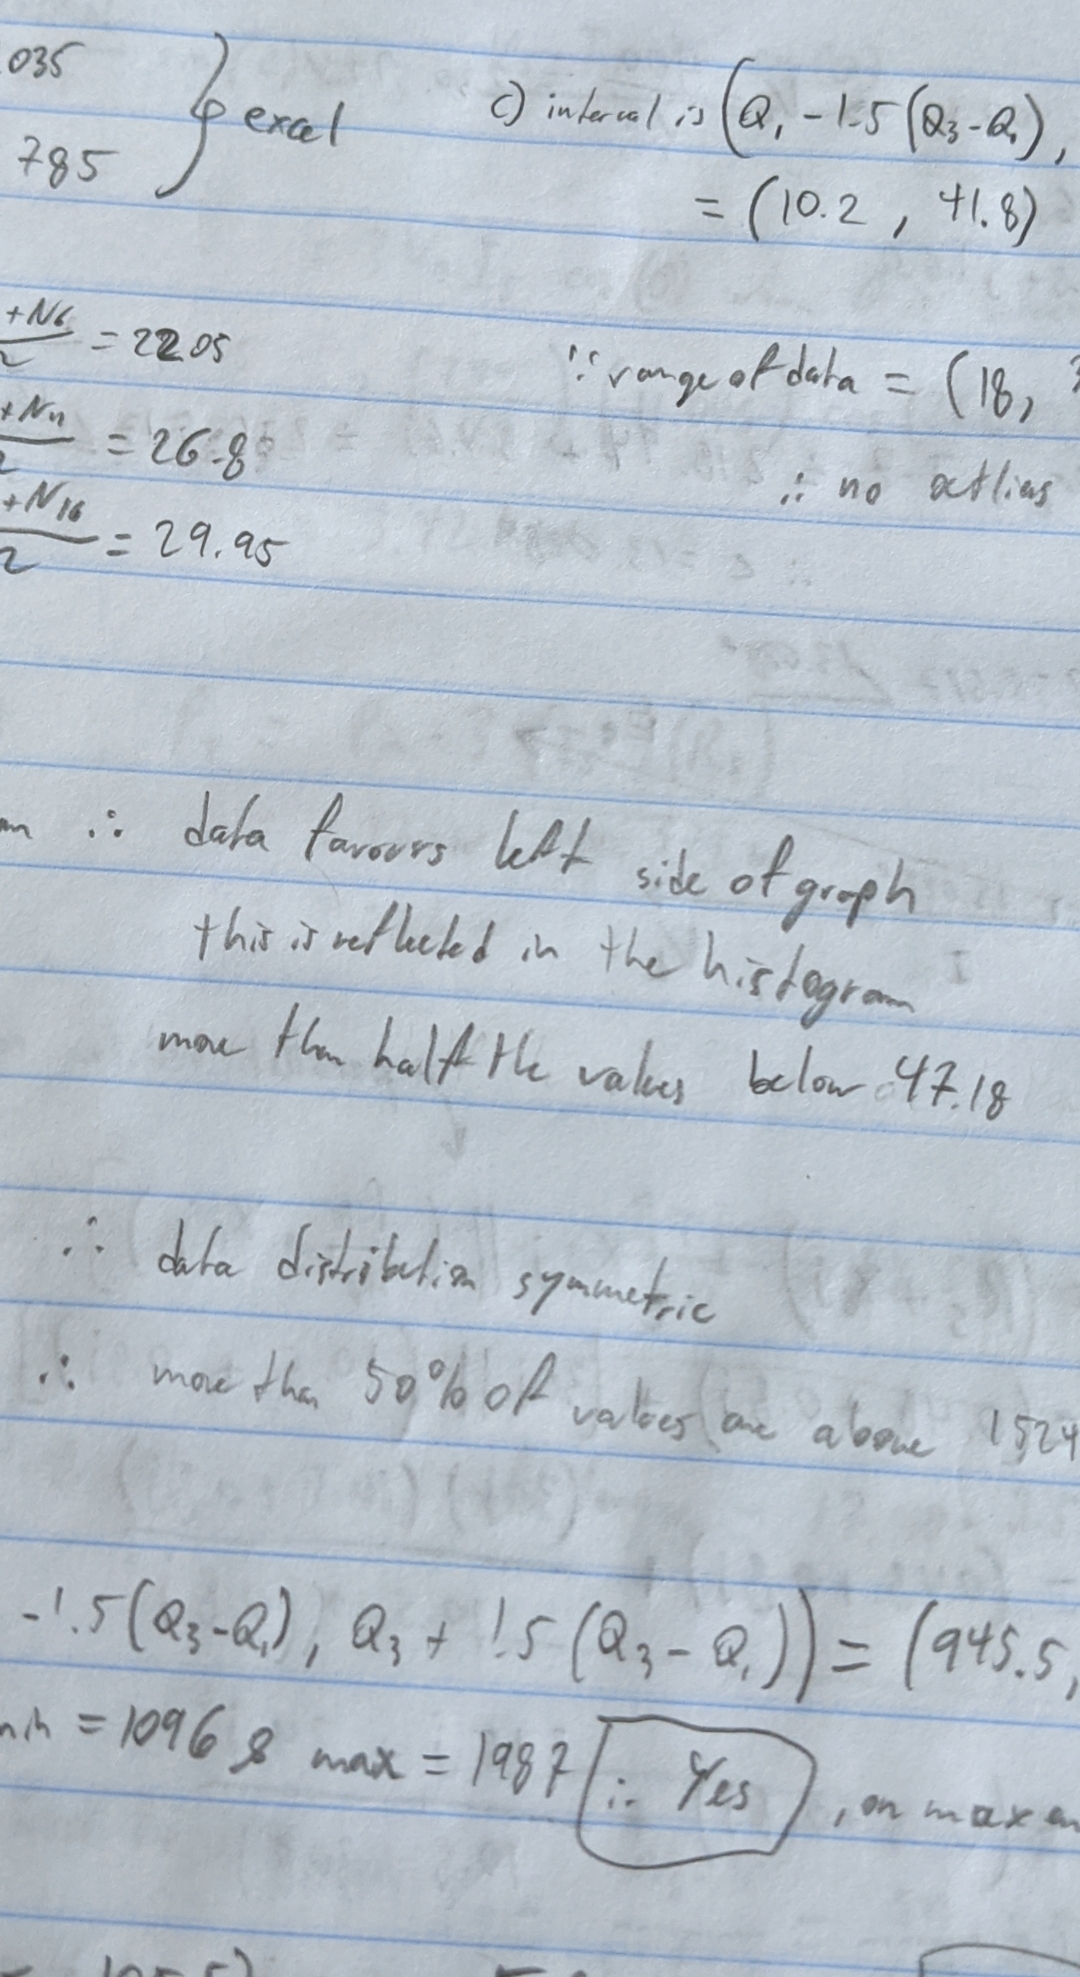 035
785
} excel
c) interval is (Q₁ - 1.5(Q₃-Q₁),
= (10.2 , 41.8)
+N6/2 = 22.05
+N11/2 = 26.8
+N16/2 = 29.95
∵ range of data = (18,
∴ no outliers
∴ data favours left side of graph
this is reflected in the histogram
more than half the values below 47.18
∴ data distribution symmetric
∴ more than 50% of values are above 1524
-1.5(Q₃-Q₁), Q₃ + 1.5(Q₃-Q₁)) = (945.5,
min = 1096 & max = 1987 ∴ Yes , on max